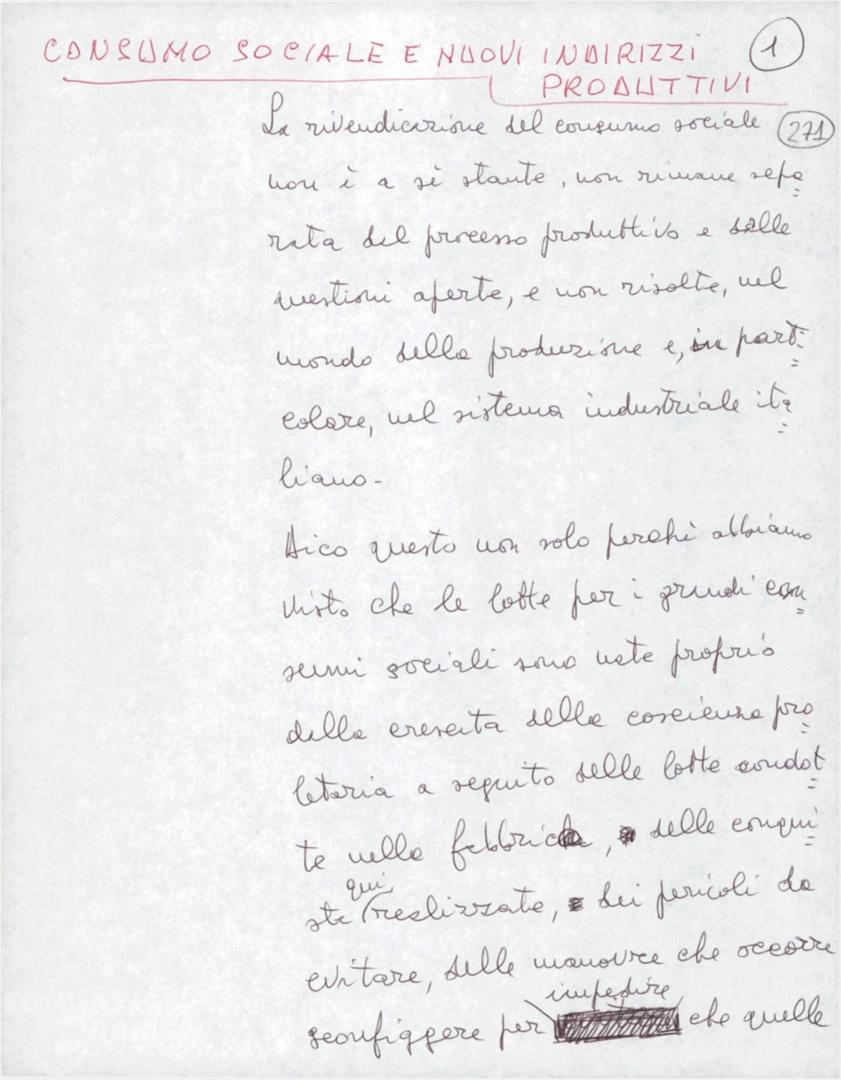 CONSUMO SOCIALE E NUOVI INDIRIZZI
PRODUTTIVI
1
271
La rivendicazione del consumo sociale
non è a sè stante, non rimane sepa=
rata dal processo produttivo e dalle
questioni aperte, e non risolte, nel
mondo della produzione e, in parti=
colare, nel sistema industriale ita=
liano-
Dico questo non solo perchè abbiamo
visto che le lotte per i grandi con=
sumi sociali sono nate proprio
dalla crescita della coscienza pro=
letaria a seguito delle lotte condot=
te nella fabbrica, delle conqui=
qui
ste realizzate, dei pericoli da
evitare, delle manovre che occorre
impedire
sconfiggere per che quelle